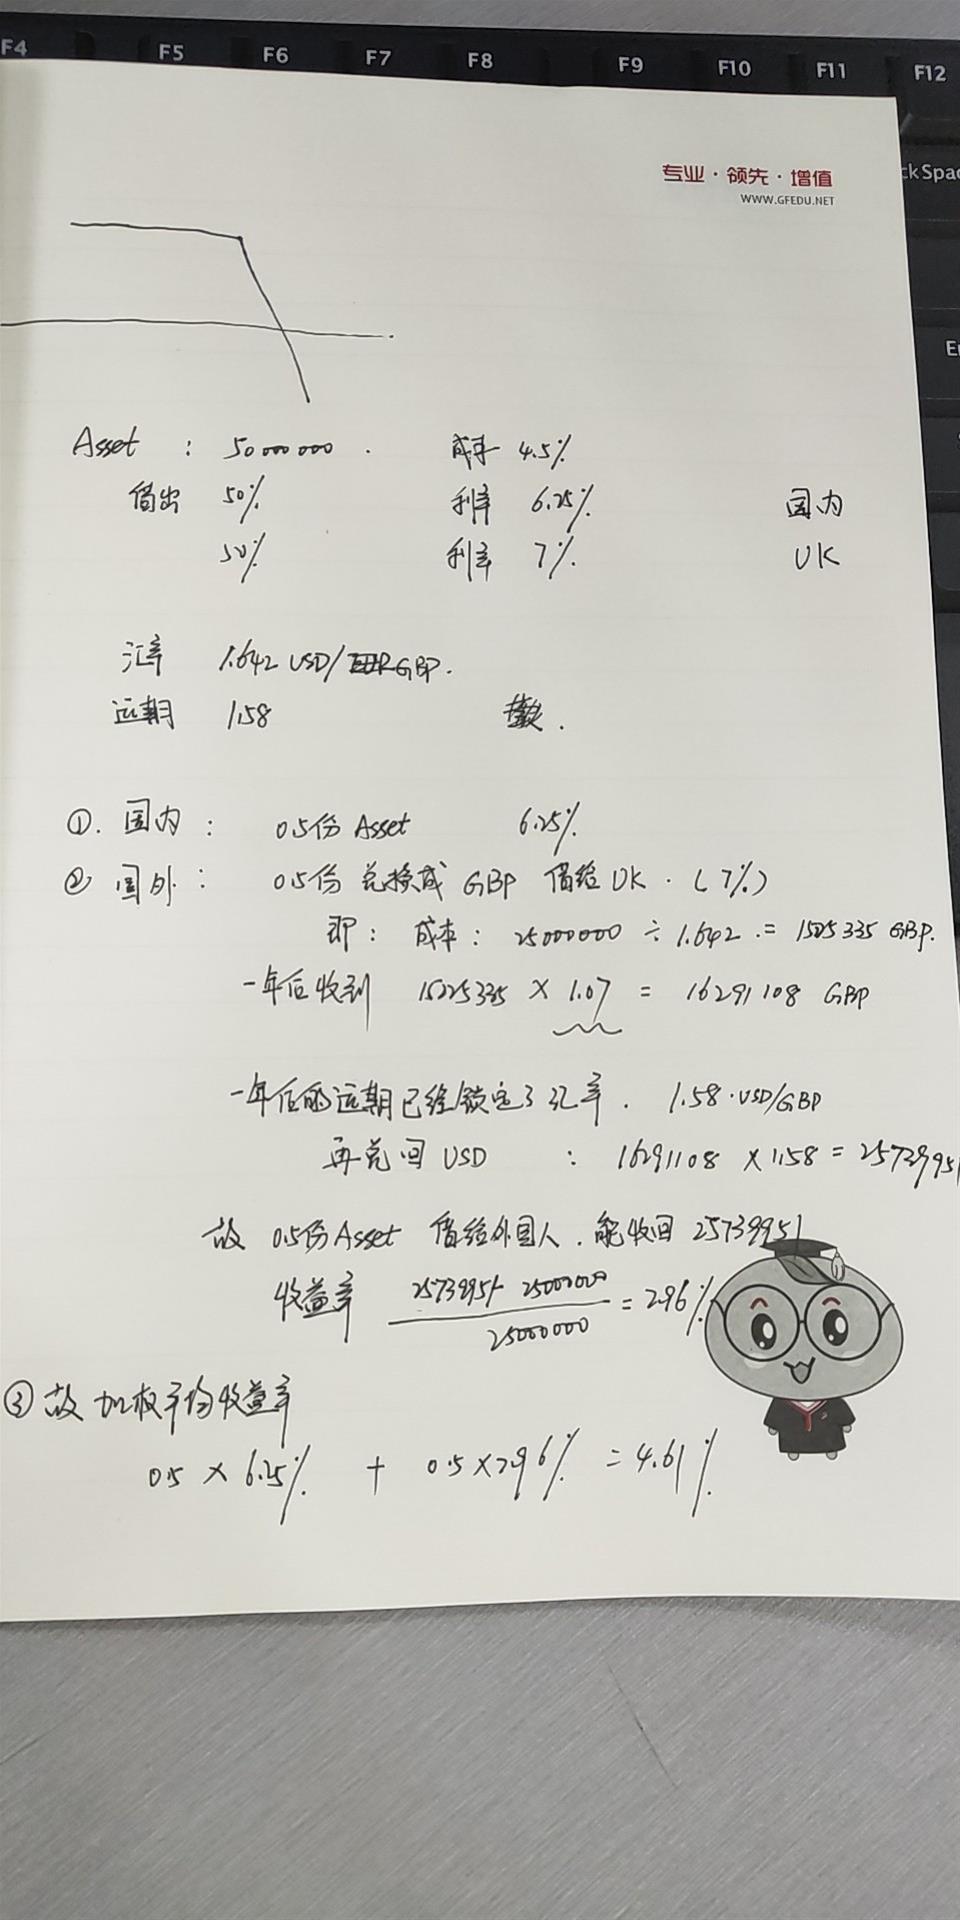 F4 F5 F6 F7 F8 F9 F10 F11 F12
ck Spac
专业·领先·增值
WWW.GFEDU.NET
En
Asset : 50000000 . 成本 4.5%
借出 50% 利率 6.25% 国内
50% 利率 7% UK
汇率 1.642 USD/GBP.
远期 1.58
①. 国内 : 0.5份 Asset 6.25%
② 国外 : 0.5份 兑换成 GBP 借给 UK . (7%)
即 : 成本 : 25000000 ÷ 1.642 = 1525335 GBP.
一年后收到 15225335 × 1.07 = 16291108 GBP
一年后的远期已经锁定了汇率 . 1.58 USD/GBP
再兑回 USD : 16291108 × 1.58 = 25739951
故 0.5份 Asset 借给外国人 . 能收回 25739951
收益率 25739951 - 25000000 / 25000000 = 2.96%
③ 故 加权平均收益率
0.5 × 6.25% + 0.5 × 2.96% = 4.61%